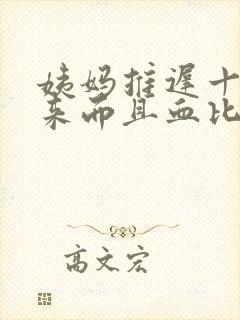 姨妈推迟十
来而且血比
高文宏